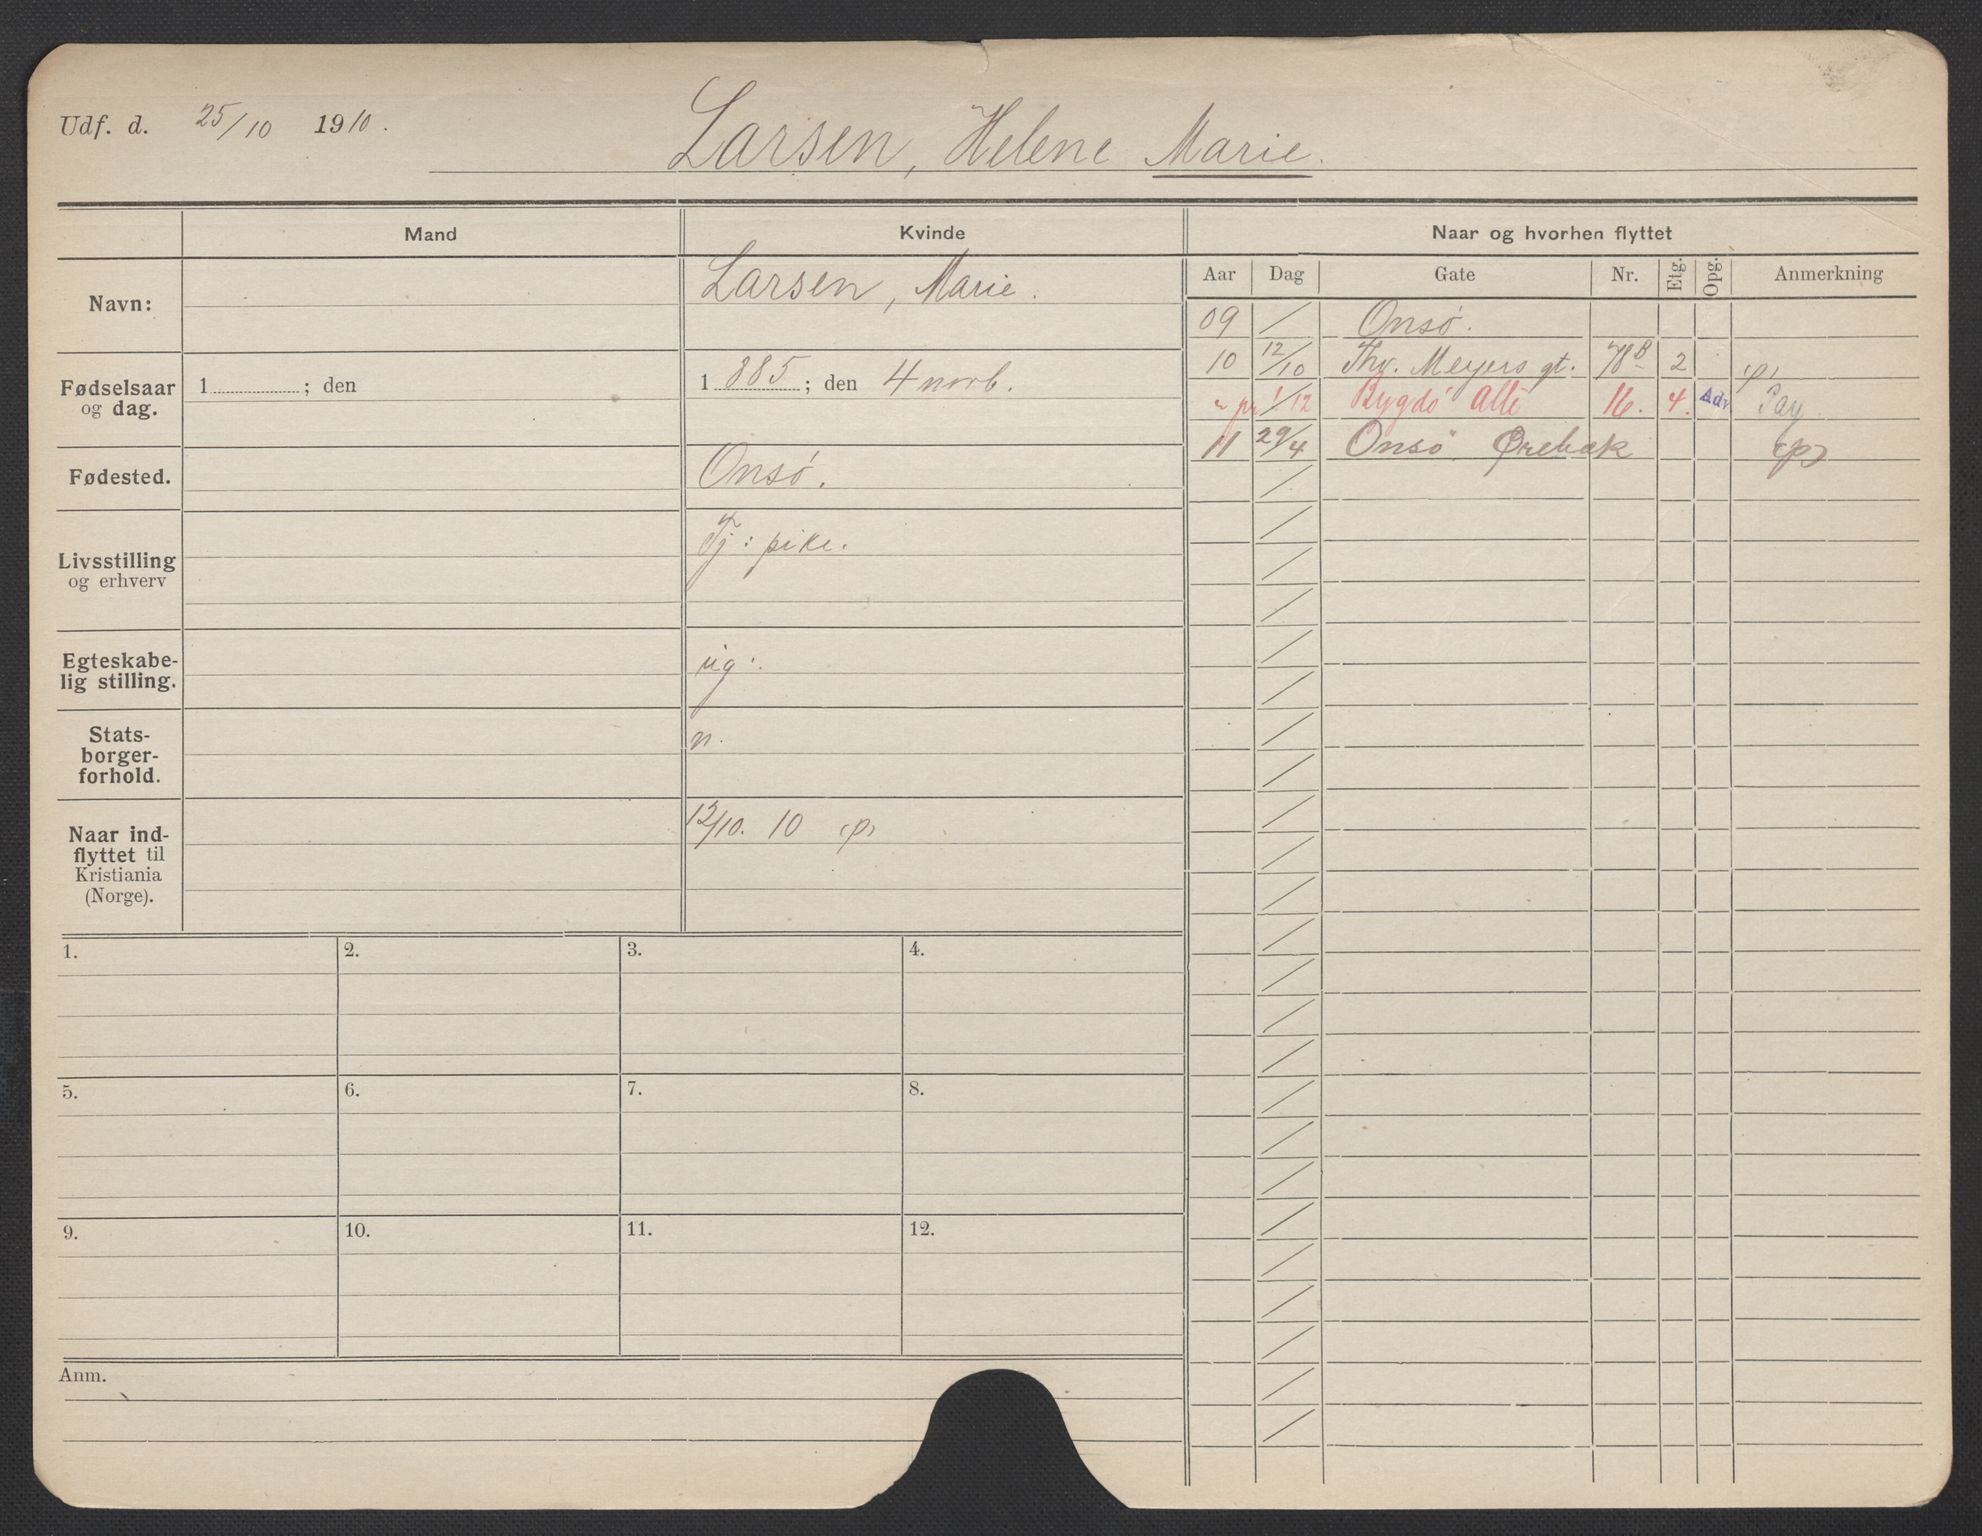 Udf. d. 25/10 1910.
Larsen, Helene Marie.
Mand
Kvinde
Naar og hvorhen flyttet
Aar Dag Gate Nr. Etg. Opg. Anmerkning
Navn:
Larsen, Marie.
Fødselsaar og dag.
1 ; den
1 885 ; den 4 novb.
Fødested.
Onsø.
Livsstilling og erhverv
Tj: pike.
Egteskabe-
lig stilling.
ug:
Stats-
borger-
forhold.
n.
Naar ind-
flyttet til
Kristiania
(Norge).
12/10. 10 (p)
09 / Onsø.
10 12/10 Thv. Meyers gt. 78B 2 (p)
" pr 1/12 Bygdö Allé 16. 4. Adr.
11 29/4 Onsø Ørebæk (p)
1. 2. 3. 4.
5. 6. 7. 8.
9. 10. 11. 12.
Anm.